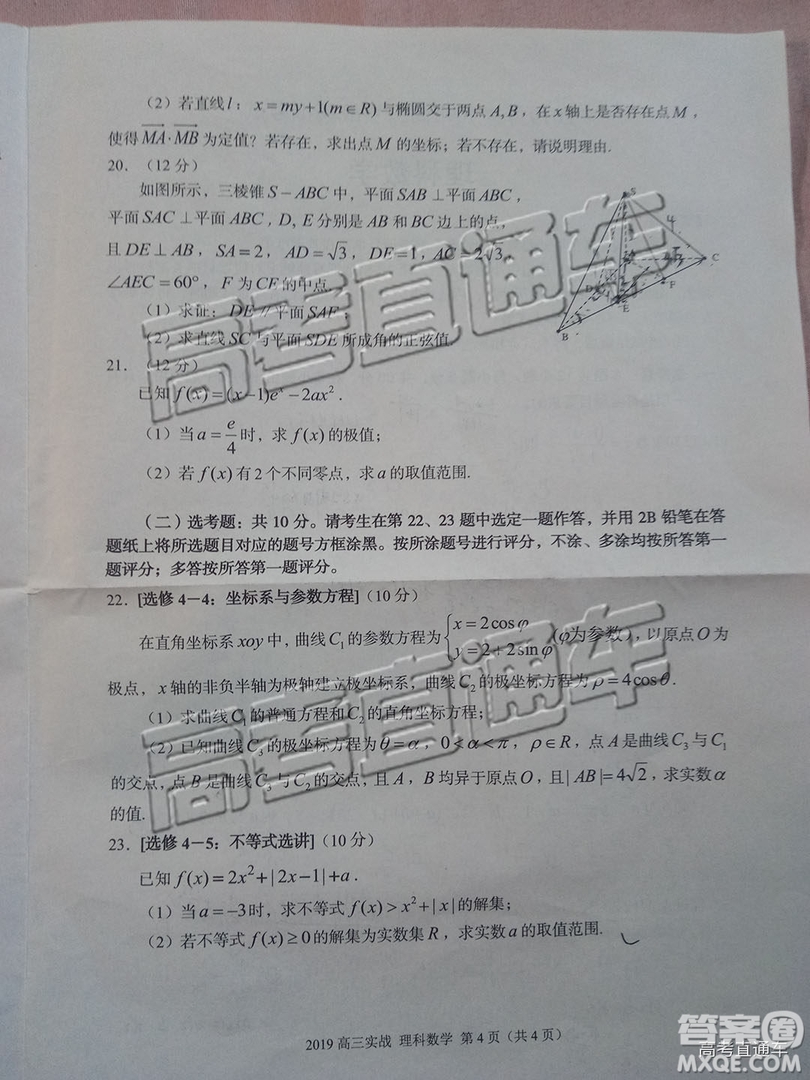 （2）若直线l：x=my+1(m∈R)与椭圆交于两点A,B，在x轴上是否存在点M，
使得MA·MB为定值？若存在，求出点M的坐标；若不存在，请说明理由.
20．（12分）
如图所示，三棱锥S－ABC中，平面SAB⊥平面ABC，
平面SAC⊥平面ABC，D, E分别是AB和BC边上的点，
且DE⊥AB，SA=2，AD=√3，DE=1，AC=2√3，
∠AEC=60°，F为CE的中点.
（1）求证：DE∥平面SAF；
（2）求直线SC与平面SDE所成角的正弦值.
S
4
C
D
F
E
B
21．（12分）
已知f(x)=(x-1)eˣ-2ax².
（1）当a=e/4时，求f(x)的极值；
（2）若f(x)有2个不同零点，求a的取值范围.
（二）选考题：共10分。请考生在第22、23题中选定一题作答，并用2B铅笔在答
题纸上将所选题目对应的题号方框涂黑。按所涂题号进行评分，不涂、多涂均按所答第一
题评分；多答按所答第一题评分。
22．[选修4－4：坐标系与参数方程]（10分）
在直角坐标系xoy中，曲线C₁的参数方程为{x=2cosφ
y=2+2sinφ（φ为参数），以原点O为
极点，x轴的非负半轴为极轴建立极坐标系，曲线C₂的极坐标方程为ρ=4cosθ.
（1）求曲线C₁的普通方程和C₂的直角坐标方程；
（2）已知曲线C₃的极坐标方程为θ=α，0<α<π，ρ∈R，点A是曲线C₃与C₁
的交点，点B是曲线C₃与C₂的交点，且A，B均异于原点O，且|AB|=4√2，求实数α
的值.
23．[选修4－5：不等式选讲]（10分）
已知f(x)=2x²+|2x-1|+a.
（1）当a=-3时，求不等式f(x)>x²+|x|的解集；
（2）若不等式f(x)≥0的解集为实数集R，求实数a的取值范围.
2019高三实战 理科数学 第4页（共4页）
高考直通车
高考直通车
答案卷
高考直通车
MXQE.COM